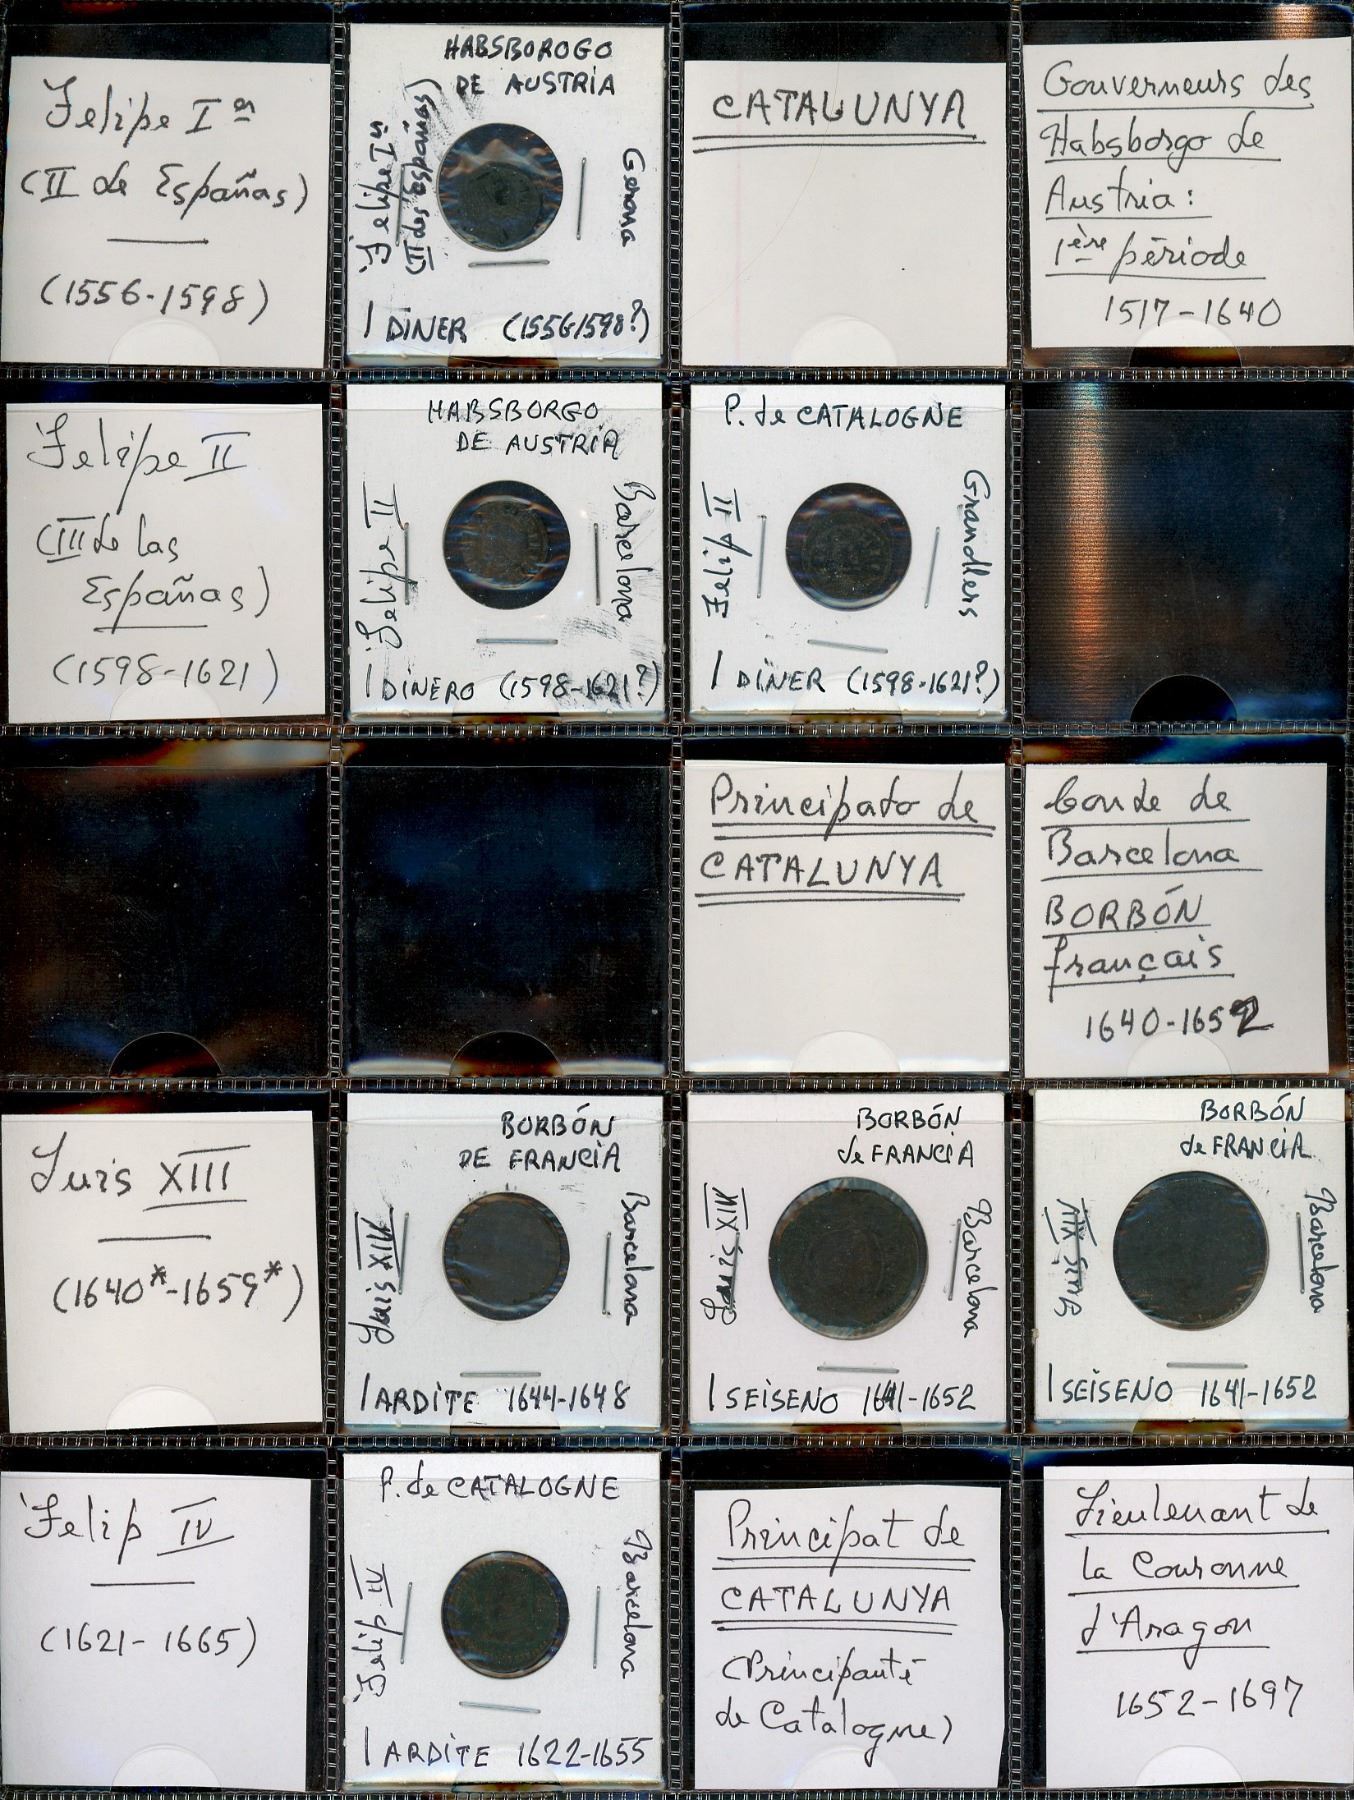 Felipe Iº
(II de Españas)
(1556-1598)
HABSBOROGO
DE AUSTRIA
Felipe Iº
(II des Españas)
Gerona
1 DINER (1556/1598?)
CATALUNYA
Gouverneurs des
Habsborgo de
Austria:
1ère période
1517-1640
Felipe II
(III de las
Españas)
(1598-1621)
HABSBORGO
DE AUSTRIA
Felipe II
Barcelona
1 DINERO (1598-1621?)
P. de CATALOGNE
Felip II
Grandllers
1 DINER (1598-1621?)
Principato de
CATALUNYA
Conde de
Barcelona
BORBÓN
français
1640-1652
Luis XIII
(1640*-1659*)
BORBÓN
DE FRANCIA
Luis XIV
Barcelona
1 ARDITE 1644-1648
BORBÓN
de FRANCIA
Luis XIV
Barcelona
1 SEISENO 1641-1652
BORBÓN
de FRANCIA
Barcelona
1 SEISENO 1641-1652
Felip IV
(1621-1665)
P. de CATALOGNE
Felip IV
Barcelona
1 ARDITE 1622-1655
Principat de
CATALUNYA
(Principauté
de Catalogne)
Lieutenant de
la Couronne
d'Aragon
1652-1697